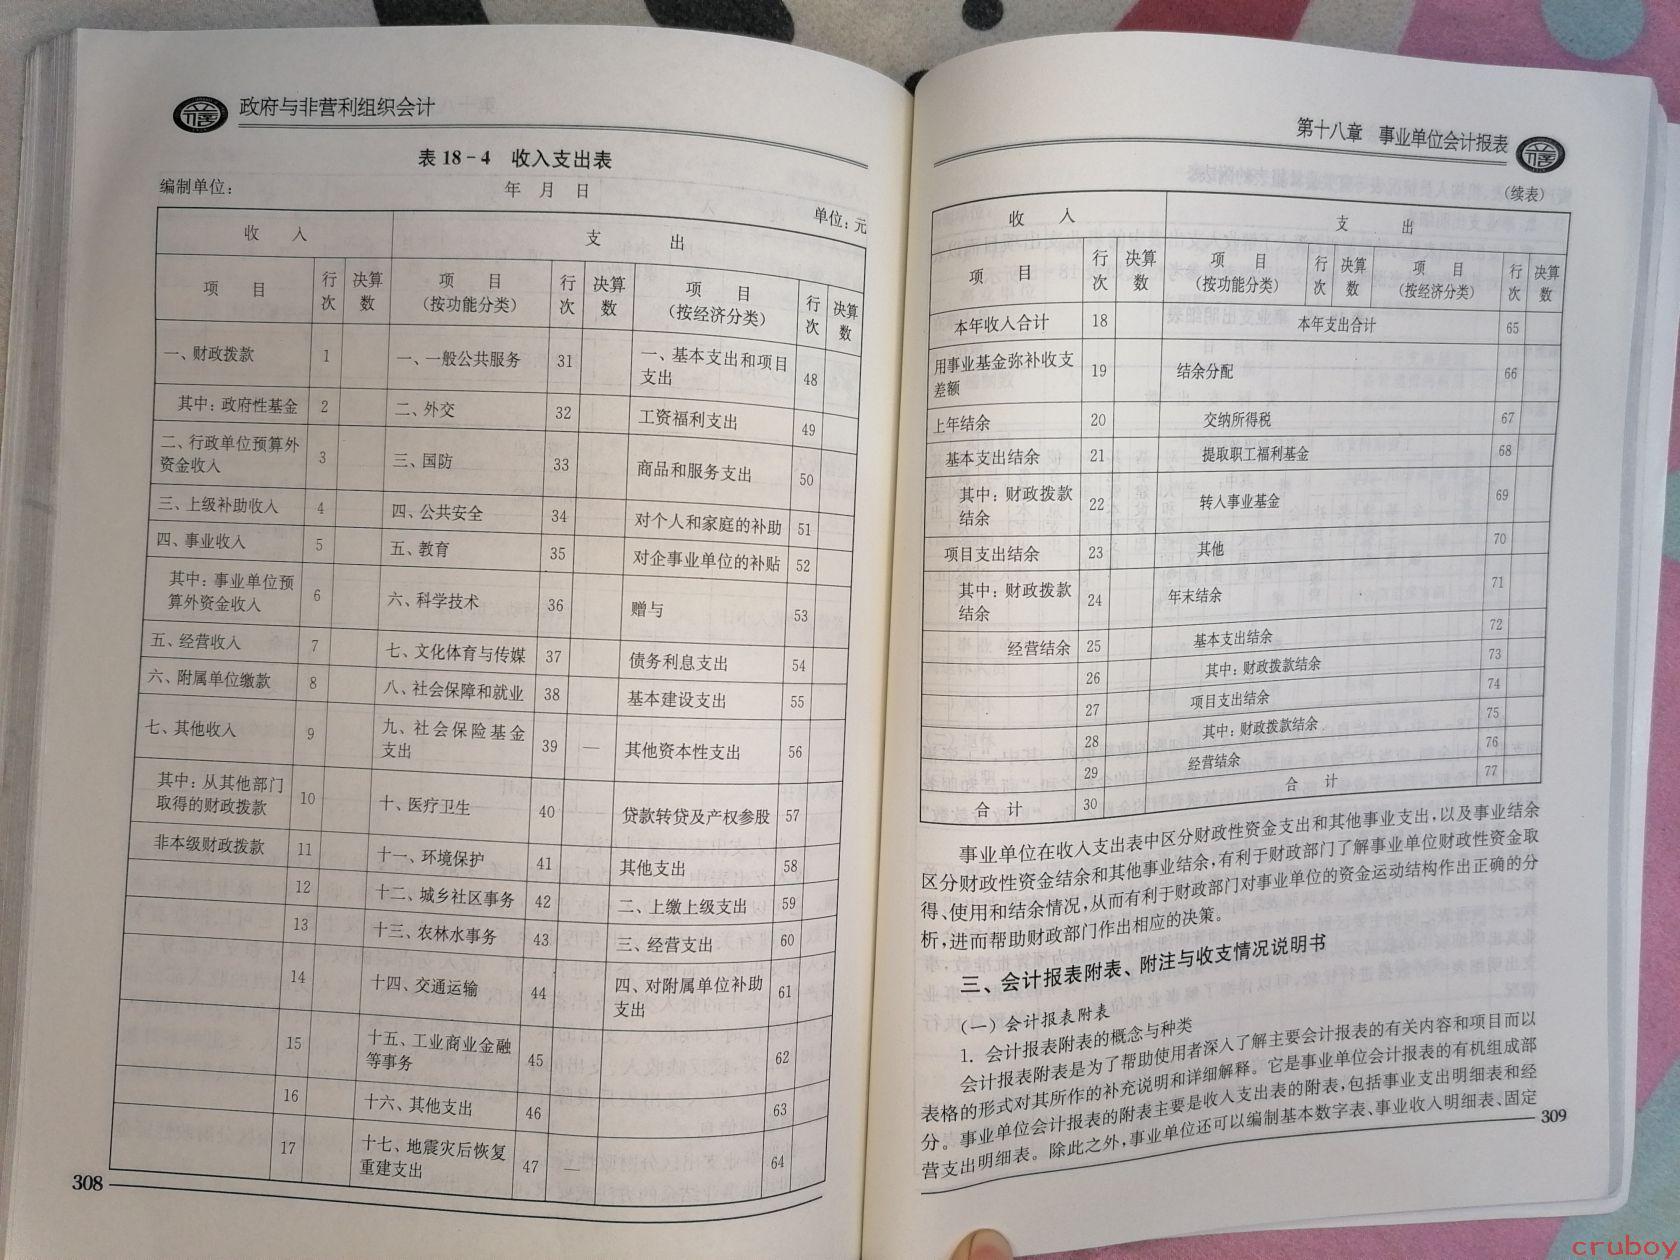 政府与非营利组织会计
表 18-4 收入支出表
编制单位：
年 月 日
单位：元
收 入
支 出
项 目
行次
决算数
项 目（按功能分类）
行次
决算数
项 目（按经济分类）
行次
决算数
一、财政拨款 1 一、一般公共服务 31 一、基本支出和项目支出 48
其中：政府性基金 2 二、外交 32 工资福利支出 49
二、行政单位预算外资金收入 3 三、国防 33 商品和服务支出 50
三、上级补助收入 4 四、公共安全 34 对个人和家庭的补助 51
四、事业收入 5 五、教育 35 对企事业单位的补贴 52
其中：事业单位预算外资金收入 6 六、科学技术 36 赠与 53
五、经营收入 7 七、文化体育与传媒 37 债务利息支出 54
六、附属单位缴款 8 八、社会保障和就业 38 基本建设支出 55
七、其他收入 9 九、社会保险基金支出 39 — 其他资本性支出 56
其中：从其他部门取得的财政拨款 10 十、医疗卫生 40 贷款转贷及产权参股 57
非本级财政拨款 11 十一、环境保护 41 其他支出 58
12 十二、城乡社区事务 42 二、上缴上级支出 59
13 十三、农林水事务 43 三、经营支出 60
14 十四、交通运输 44 四、对附属单位补助支出 61
15 十五、工业商业金融等事务 45 62
16 十六、其他支出 46 63
17 十七、地震灾后恢复重建支出 47 — 64
308
第十八章 事业单位会计报表
（续表）
收 入
支 出
项 目
行次
决算数
项 目（按功能分类）
行次
决算数
项 目（按经济分类）
行次
决算数
本年收入合计 18 本年支出合计 65
用事业基金弥补收支差额 19 结余分配 66
上年结余 20 交纳所得税 67
基本支出结余 21 提取职工福利基金 68
其中：财政拨款结余 22 转入事业基金 69
项目支出结余 23 其他 70
其中：财政拨款结余 24 年末结余 71
经营结余 25 基本支出结余 72
26 其中：财政拨款结余 73
27 项目支出结余 74
28 其中：财政拨款结余 75
29 经营结余 76
合 计 30 合 计 77
事业单位在收入支出表中区分财政性资金支出和其他事业支出，以及事业结余
区分财政性资金结余和其他事业结余，有利于财政部门了解事业单位财政性资金取
得、使用和结余情况，从而有利于财政部门对事业单位的资金运动结构作出正确的分
析，进而帮助财政部门作出相应的决策。
三、会计报表附表、附注与收支情况说明书
（一）会计报表附表
1. 会计报表附表的概念与种类
会计报表附表是为了帮助使用者深入了解主要会计报表的有关内容和项目而以
表格的形式对其所作的补充说明和详细解释。它是事业单位会计报表的有机组成部
分。事业单位会计报表的附表主要是收入支出表的附表，包括事业支出明细表和经
营支出明细表。除此之外，事业单位还可以编制基本数字表、事业收入明细表、固定
309
cruboy